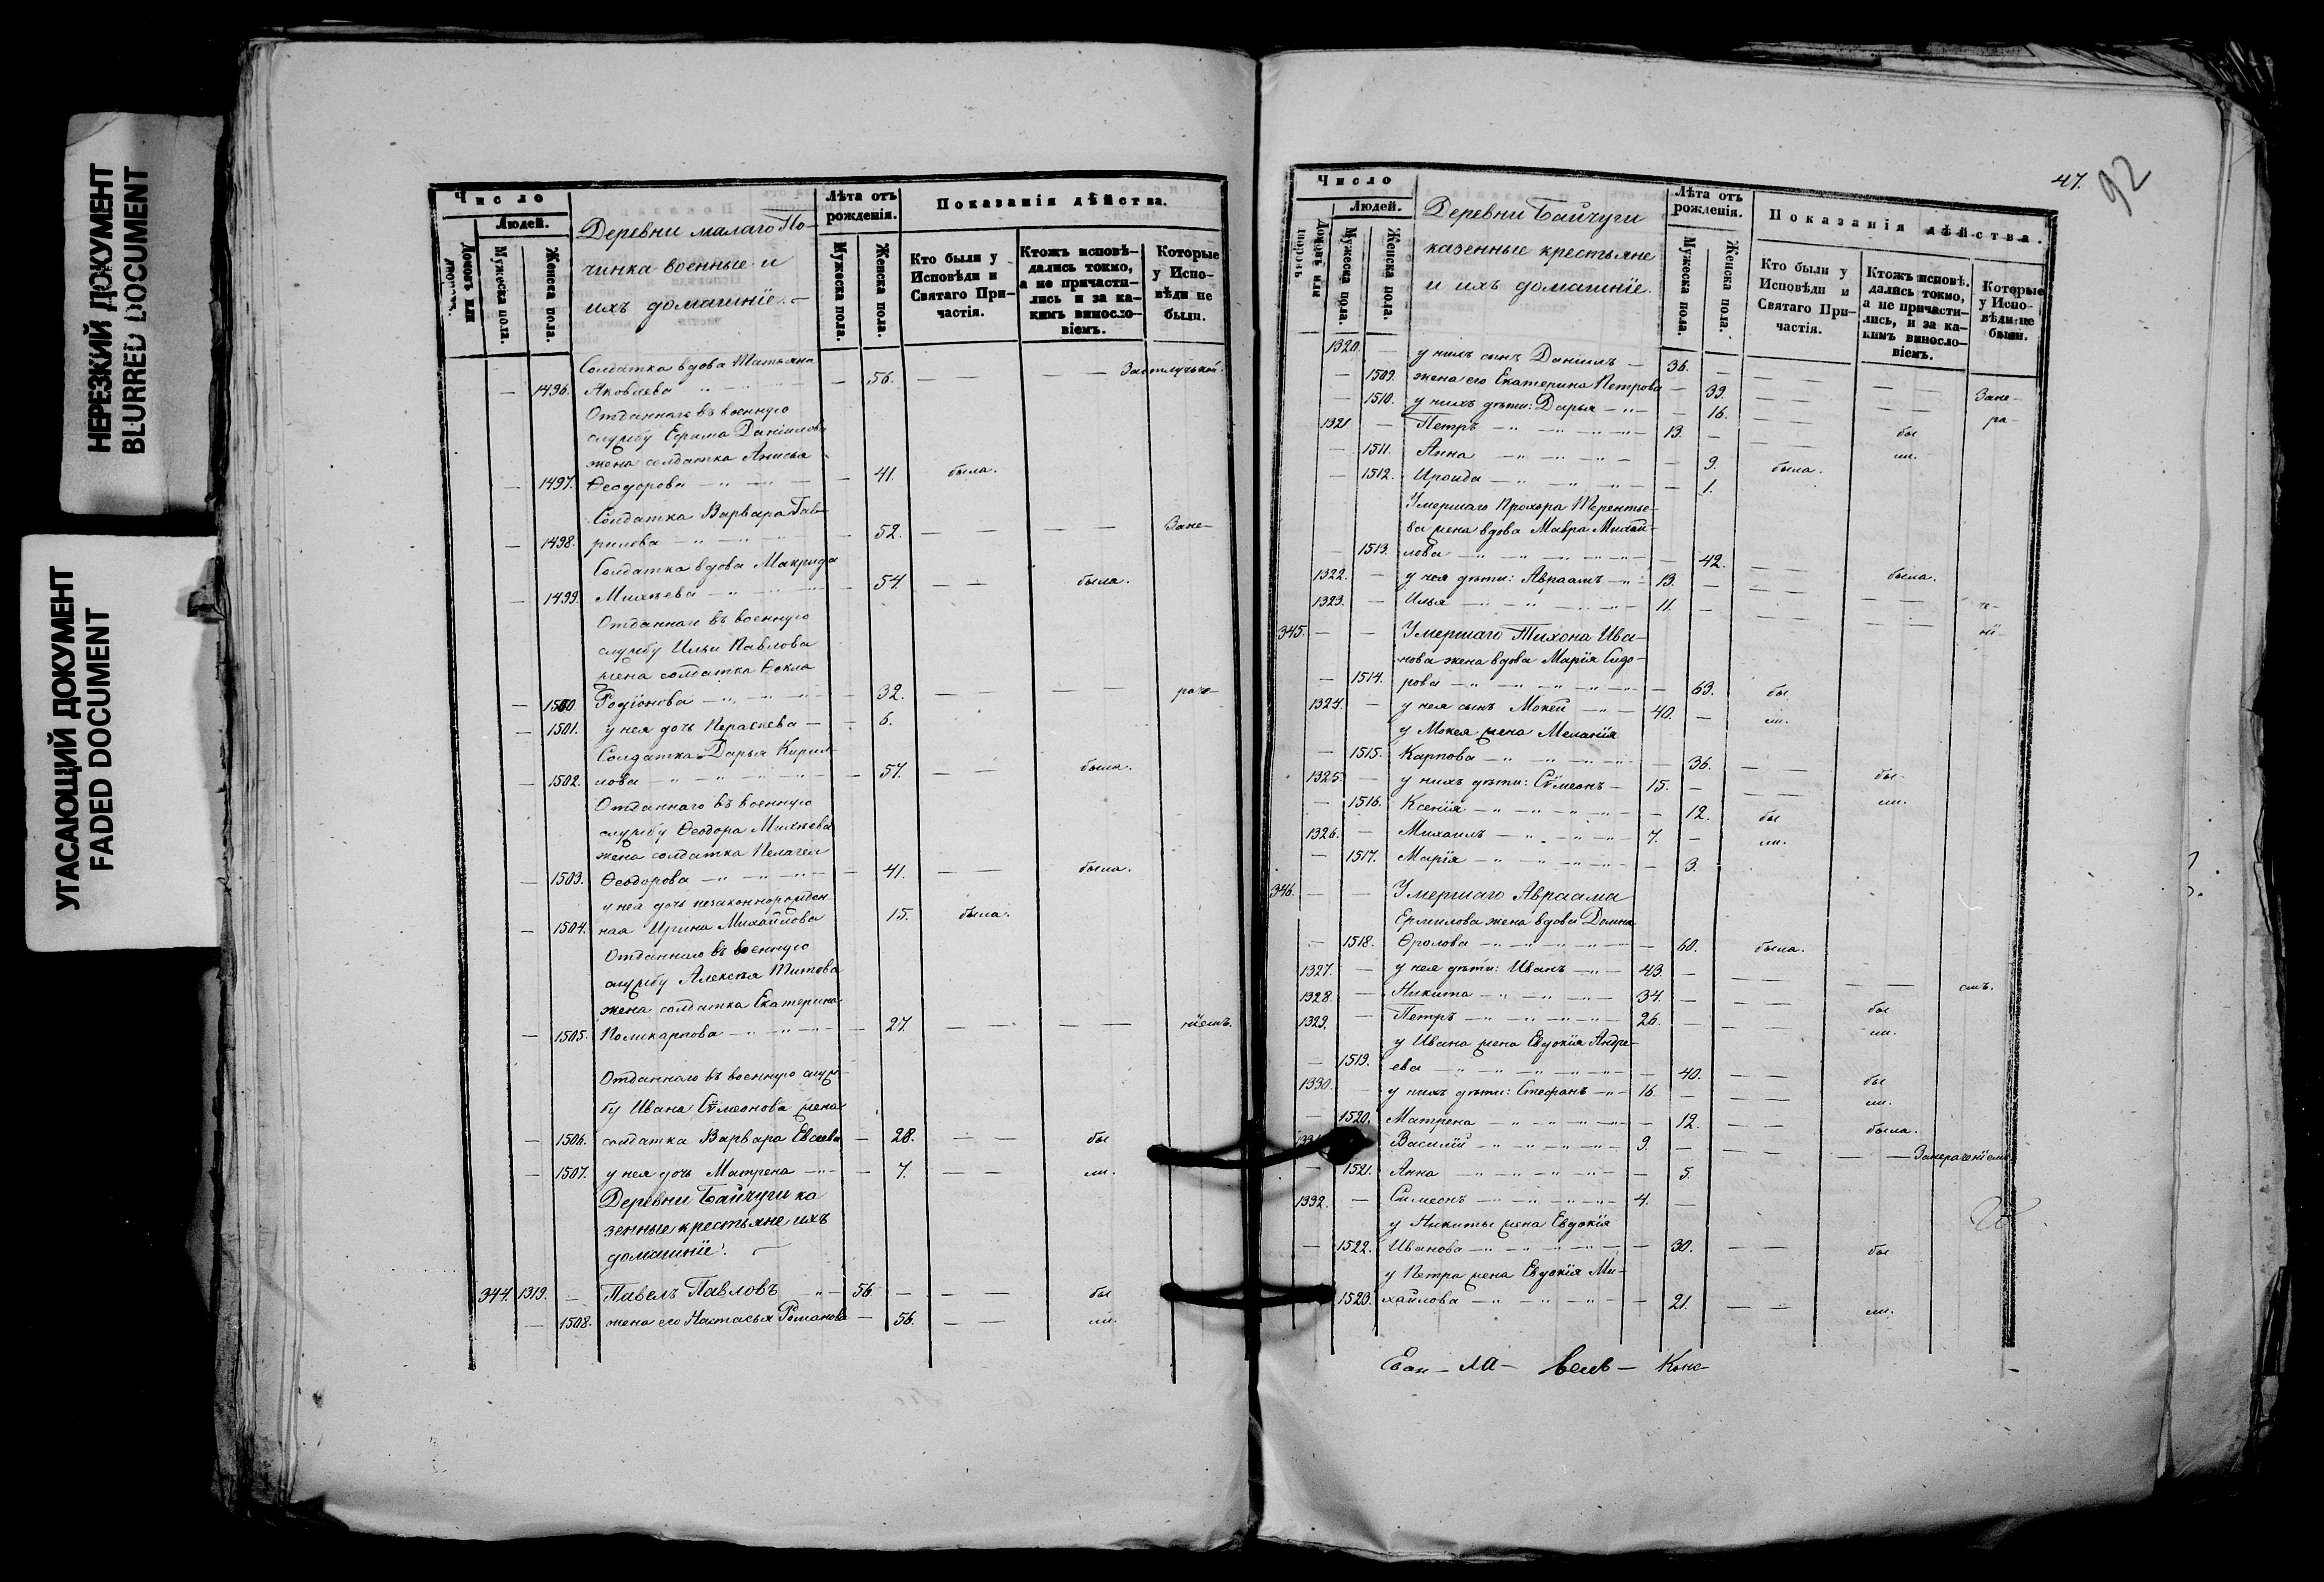 НЕРЕЗКИЙ ДОКУМЕНТ
BLURRED DOCUMENT
УГАСАЮЩИЙ ДОКУМЕНТ
FADED DOCUMENT
Число
Людей.
Домовъ или дворовъ.
Мужеска пола.
Женска пола.
Деревни малаго По-
чинка военные и
ихъ домашніе.
Лѣта отъ рожденія.
Мужеска пола.
Женска пола.
Показанія дѣйства.
Кто были у Исповѣди и Святаго При-частія.
Ктожъ исповѣ-дались токмо, а не причасти-лись и за ка-кимъ винословіемъ.
Которые у Испо-вѣди не были.
Солдатка вдова Татьяна
— 1496. Яковлева — 56. — — — За отлучкой.
Отданнаго въ военную
службу Ефима Даніилова
жена солдатка Анисья
— 1497. Ѳеодорова — 41. была.
Солдатка Варвара Гав-
— 1498. рилова — 52. — — — Зане-
Солдатка вдова Макрида
— 1499. Михѣева — 54. — — была.
Отданнаго въ военную
службу Ильи Павлова
жена солдатка Ѳекла
— 1500. Родіонова — 32. — — — — раче-
— 1501. у нея дочь Параскева — — 6.
Солдатка Дарья Кирил-
— 1502. лова — 57. — — была.
Отданнаго въ военную
службу Ѳеодора Михѣева
жена солдатка Пелагея
— 1503. Ѳеодорова — 41. — — была.
у нея дочь незаконнорожден-
— 1504. ная Ирина Михайлова 15. была.
Отданнаго въ военную
службу Алексѣя Титова
жена солдатка Екатерина
— 1505. Поликарпова — 27. — — — — ніемъ.
Отданнаго въ военную служ-
бу Ивана Сѵмеонова жена
— 1506. солдатка Варвара Евсеева — 28. — — бы
— 1507. у нея дочь Матрена — 7. — — ли.
Деревни Байчуги ка
зенные крестьяне ихъ
домашніе.
344. 1319. — Павелъ Павловъ — 56. — — — бы
— 1508. жена его Настасья Романова — 56. — — ли.
47.
92
Число
Людей.
Домовъ или дворовъ
Мужеска пола.
Женска пола.
Деревни Байчуги
казенные крестьяне
и ихъ домашніе.
Лѣта отъ рожденія.
Мужеска пола.
Женска пола.
Показанія дѣйства.
Кто были у Исповѣди и Святаго При-частія.
Ктожъ исповѣ.дались токмо, а не причасти-лись, и за ка-кимъ винословіемъ.
Которые у Испо-вѣди не были.
1320. — у нихъ сынъ Даніилъ — 36. —
— 1509. жена его Екатерина Петрова — 39. — — — — Зане-
— 1510. у нихъ дѣти: Дарья — — 16. — — — — ра-
1321 — Петръ — 13. — — — бы
— 1511. Анна — 9. — — ли.
— 1512. Ироида — 1. была.
Умершаго Прохора Терентье-
ва жена вдова Мавра Михай-
— 1513. лова — 42. — — была.
1322. — у нея дѣти: Авраамъ — 13. — — — — — че-
1323. — Илья — 11. — — — — — ні-
345. — — Умершаго Тихона Ива-
нова жена вдова Марія Сидо-
— 1514. рова — 63. бы
1324. — у нея сынъ Мокей — 40. — ли.
у Мокея жена Меланія
— 1515. Карпова — 36. — — бы
1325. — у нихъ дѣти: Сѵмеонъ — 15. — — — ли.
— 1516. Ксенія — 12. бы
1326. — Михаилъ — 7. — ли.
— 1517. Марія — 3.
346. — — Умершаго Авраама
Ермилова жена вдова Домна
— 1518. Фролова — 60. была.
1327. — у нея дѣти: Иванъ — 43. — — — — — емъ.
1328. — Никита — 34. — — — бы
1329. — Петръ — 26. — — — ли.
у Ивана жена Евдокія Андре-
— 1519. ева — 40. — — бы
1330. — у нихъ дѣти: Стефанъ — 16. — — — ли.
— 1520. Матрена — 12. — — была.
Василій — 9. — — — — — Занераченіемъ
— 1521. Анна — 5.
1332. — Симеонъ — 4. —
у Никиты жена Евдокія
— 1522. Иванова — 30. — — бы
у Петра жена Евдокія Ми-
1523. хайлова — 21. — — ли.